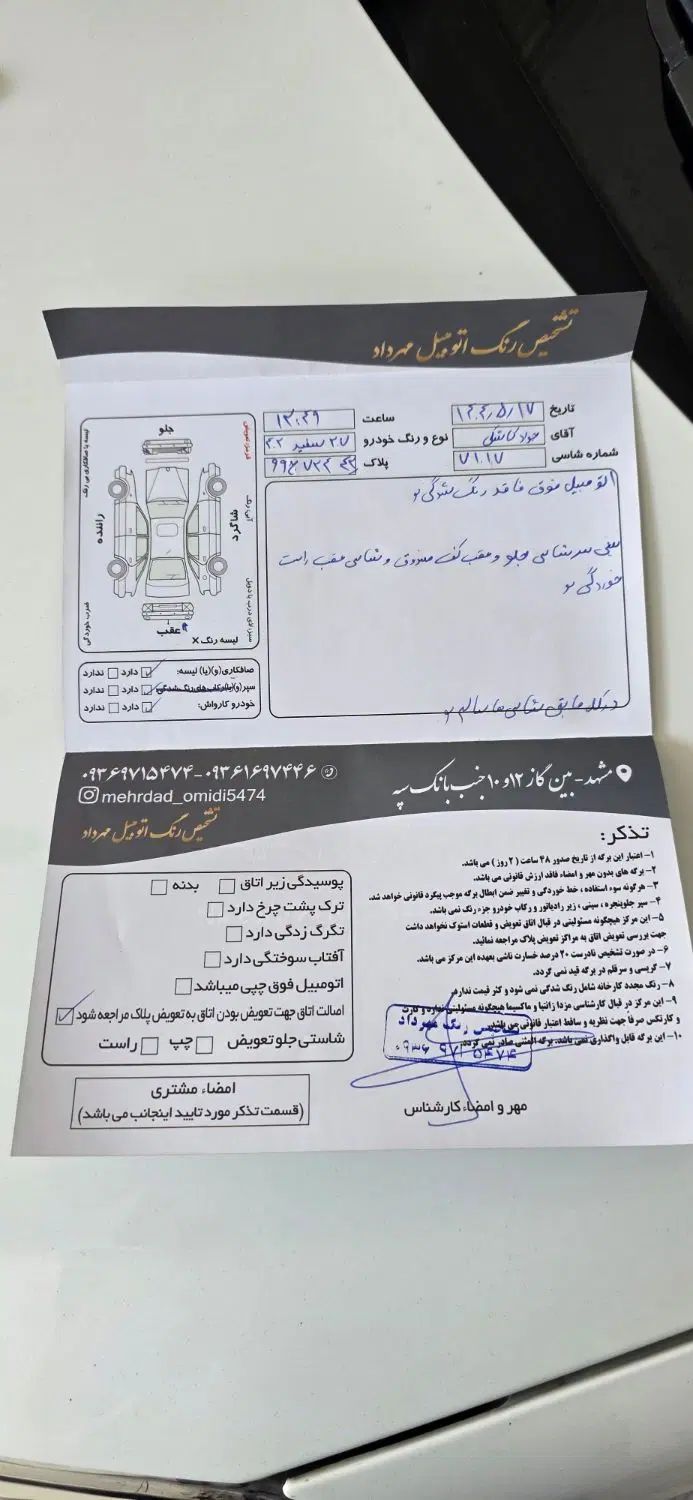 تشخیص رنگ اتومبیل مهرداد
تاریخ ۱۴۰۴/۵/۱۷ ساعت ۱۳:۴۹
آقای جواد نوع و رنگ خودرو سفید
شماره شاسی ۷۱۰۱۷ پلاک
اتومبیل فوق فاقد رنگ شدگی
سینی سر شاسی جلو و عقب کف صندوق و شاسی عقب راست
خوردگی
در کل مابقی شاسی ها سالم
جلو
راننده
شاگرد
عقب
لیسه رنگ X
ضرب خوردگی
لیسه یا صافکاری بی رنگ
صافکاری(و)(یا) لیسه: دارد ندارد
سپر(و)(یا)رکاب های رنگ شدگی دارد ندارد
خودرو کارواش: دارد ندارد
مشهد - بین گاز ۱۲و۱۰ جنب بانک سپه
۰۹۳۶۱۶۹۷۴۴۶-۰۹۳۶۹۷۱۵۴۷۴
mehrdad_omidi5474
تشخیص رنگ اتومبیل مهرداد
تذکر:
۱- اعتبار این برگه از تاریخ صدور ۴۸ ساعت (۲ روز) می باشد.
۲- برگه های بدون مهر و امضاء فاقد ارزش قانونی می باشد.
۳- هرگونه سوء استفاده، خط خوردگی و تغییر ضمن ابطال برگه موجب پیگرد قانونی خواهد شد.
۴- سپر جلوپنجره، سینی، زیر رادیاتور و رکاب خودرو جزء رنگ نمی باشد.
۵- این مرکز هیچگونه مسئولیتی در قبال اتاق تعویض و قطعات استوک نخواهد داشت
جهت بررسی تعویض اتاق به مراکز تعویض پلاک مراجعه نمائید.
۶- در صورت تشخیص نادرست ۲۰ درصد خسارت ناشی بعهده این مرکز می باشد.
۷- گریسی و سرقلم در برگه قید نمی گردد.
۸- رنگ مجدد کارخانه شامل رنگ شدگی نمی شود و کثر قیمت ندارد.
۹- این مرکز در قبال کارشناسی مزدا زانتیا و ماکسیما هیچگونه مسئولیتی ندارد و کارت
و کارتکس صرفاً جهت نظریه و ساقط اعتبار قانونی می باشد.
۱۰- این برگه قابل واگذاری نمی باشد. برگه المثنی صادر نمی گردد.
تشخیص رنگ مهرداد
۰۹۳۶ ۹۷۱ ۵۴۷۴
مهر و امضاء کارشناس
پوسیدگی زیر اتاق بدنه
ترک پشت چرخ دارد
تگرگ زدگی دارد
آفتاب سوختگی دارد
اتومبیل فوق چپی میباشد
اصالت اتاق جهت تعویض بودن اتاق به تعویض پلاک مراجعه شود
شاستی جلو تعویض چپ راست
امضاء مشتری
(قسمت تذکر مورد تایید اینجانب می باشد)